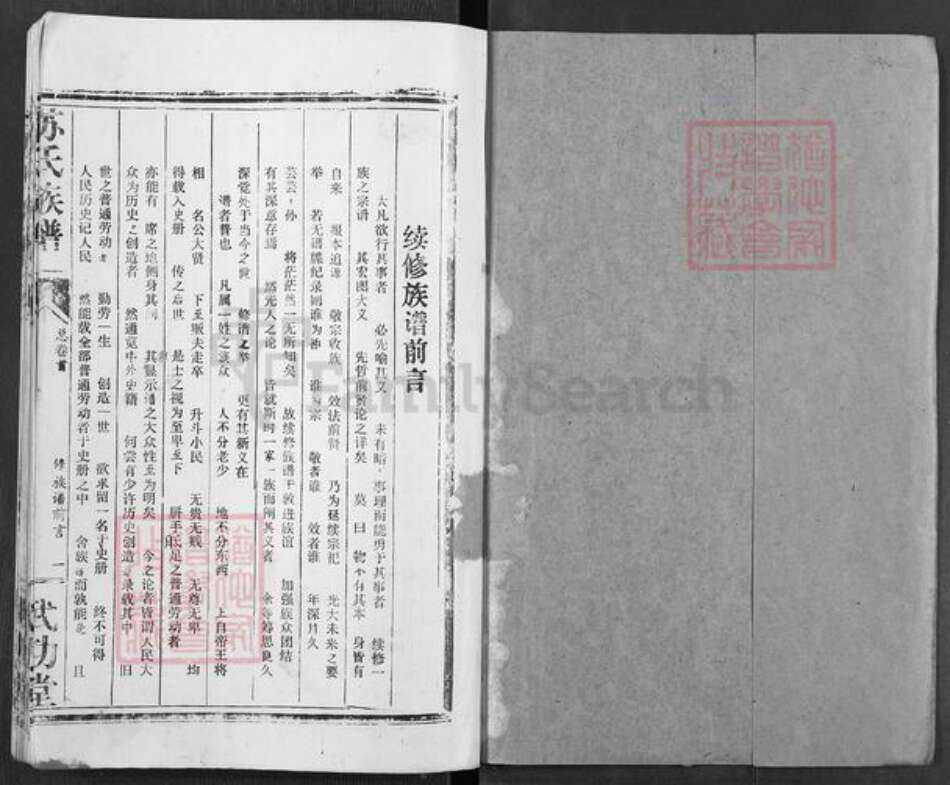 续修族谱前言
大凡欲行其事者 必先喻其义 未有暗 事理而能勇于其事者 续修一
族之宗谱 其宏图大义 先哲前贤论之详矣 莫曰 物个有其本 身皆有
自来 报本追源 敬宗收族 效法前贤 乃为延续宗祀 光大未来之要
举 若无谱牒纪录则谁为神 谁为宗 敬者谁 效者谁 年深月久
芸芸 孙 将茫茫然一无所知矣 故续修族谱于敦进族谊 加强族众团结
有其深意存焉 然先人之论 皆就斯时一家一族而阐其义者 余等筹思良久
深觉处于当今之世 修谱之举 更有其新义在
谱者普也 凡属一姓之族众 人不分老少 地不分东西 上自帝王将
相 名公大贤 下至贩夫走卒 升斗小民 无贵无贱 无尊无卑 均
得载入史册 传之后世 是士之视为至卑至下 胼手胝足之普通劳动者
亦能有 席之地侧身其间 其显示谱之大众性至为明矣 今之论者皆谓人民大
众为历史之创造者 然通览中外史籍 何尝有少许历史创造 录载其中 旧
世之普通劳动者 勤劳一生 创造一世 欲求留一名于史册 终不可得
人民历史记人民 然能载全部普通劳动者于史册之中 舍族谱而孰能之 且
苏氏族谱
总卷首
修族谱前言 一
武功堂
FamilySearch